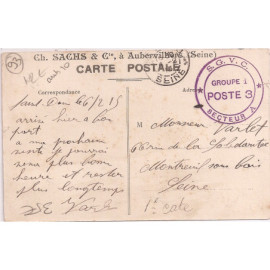 93
Ch. SACHS & Cie, à Aubervilliers (Seine)
CARTE POSTALE
Correspondance
Adresse
SEINE
S.G.V.C.
GROUPE 1
POSTE 3
SECTEUR A
Saint Denis
arrivé hier à bon
port
a ma prochaine
visite je pourrai
plus bonne
heure et rester
plus longtemps
M Monsieur Varlet
rue de la Solidarité
Montreuil sous bois
Seine